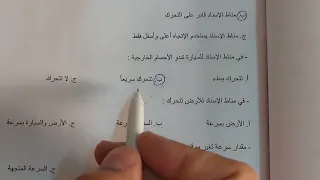 ب. مناط الإسناد قادر على التحرك
ج. مناط الإسناد يستخدم الإتجاه أعلى وأسفل فقط
- في مناط الإسناد للسيارة تبدو الأجسام الخارجية :
أ. تتحرك ببطء ب. تتحرك سريعاً ج. لا تتحرك
- في مناط الإسناد للأرض تتحرك :
أ. الأرض بسرعة ب. بسرعة ج. الأرض والسيارة بسرعة
- مقدار سرعة تغير
ج. السرعة المتجهة